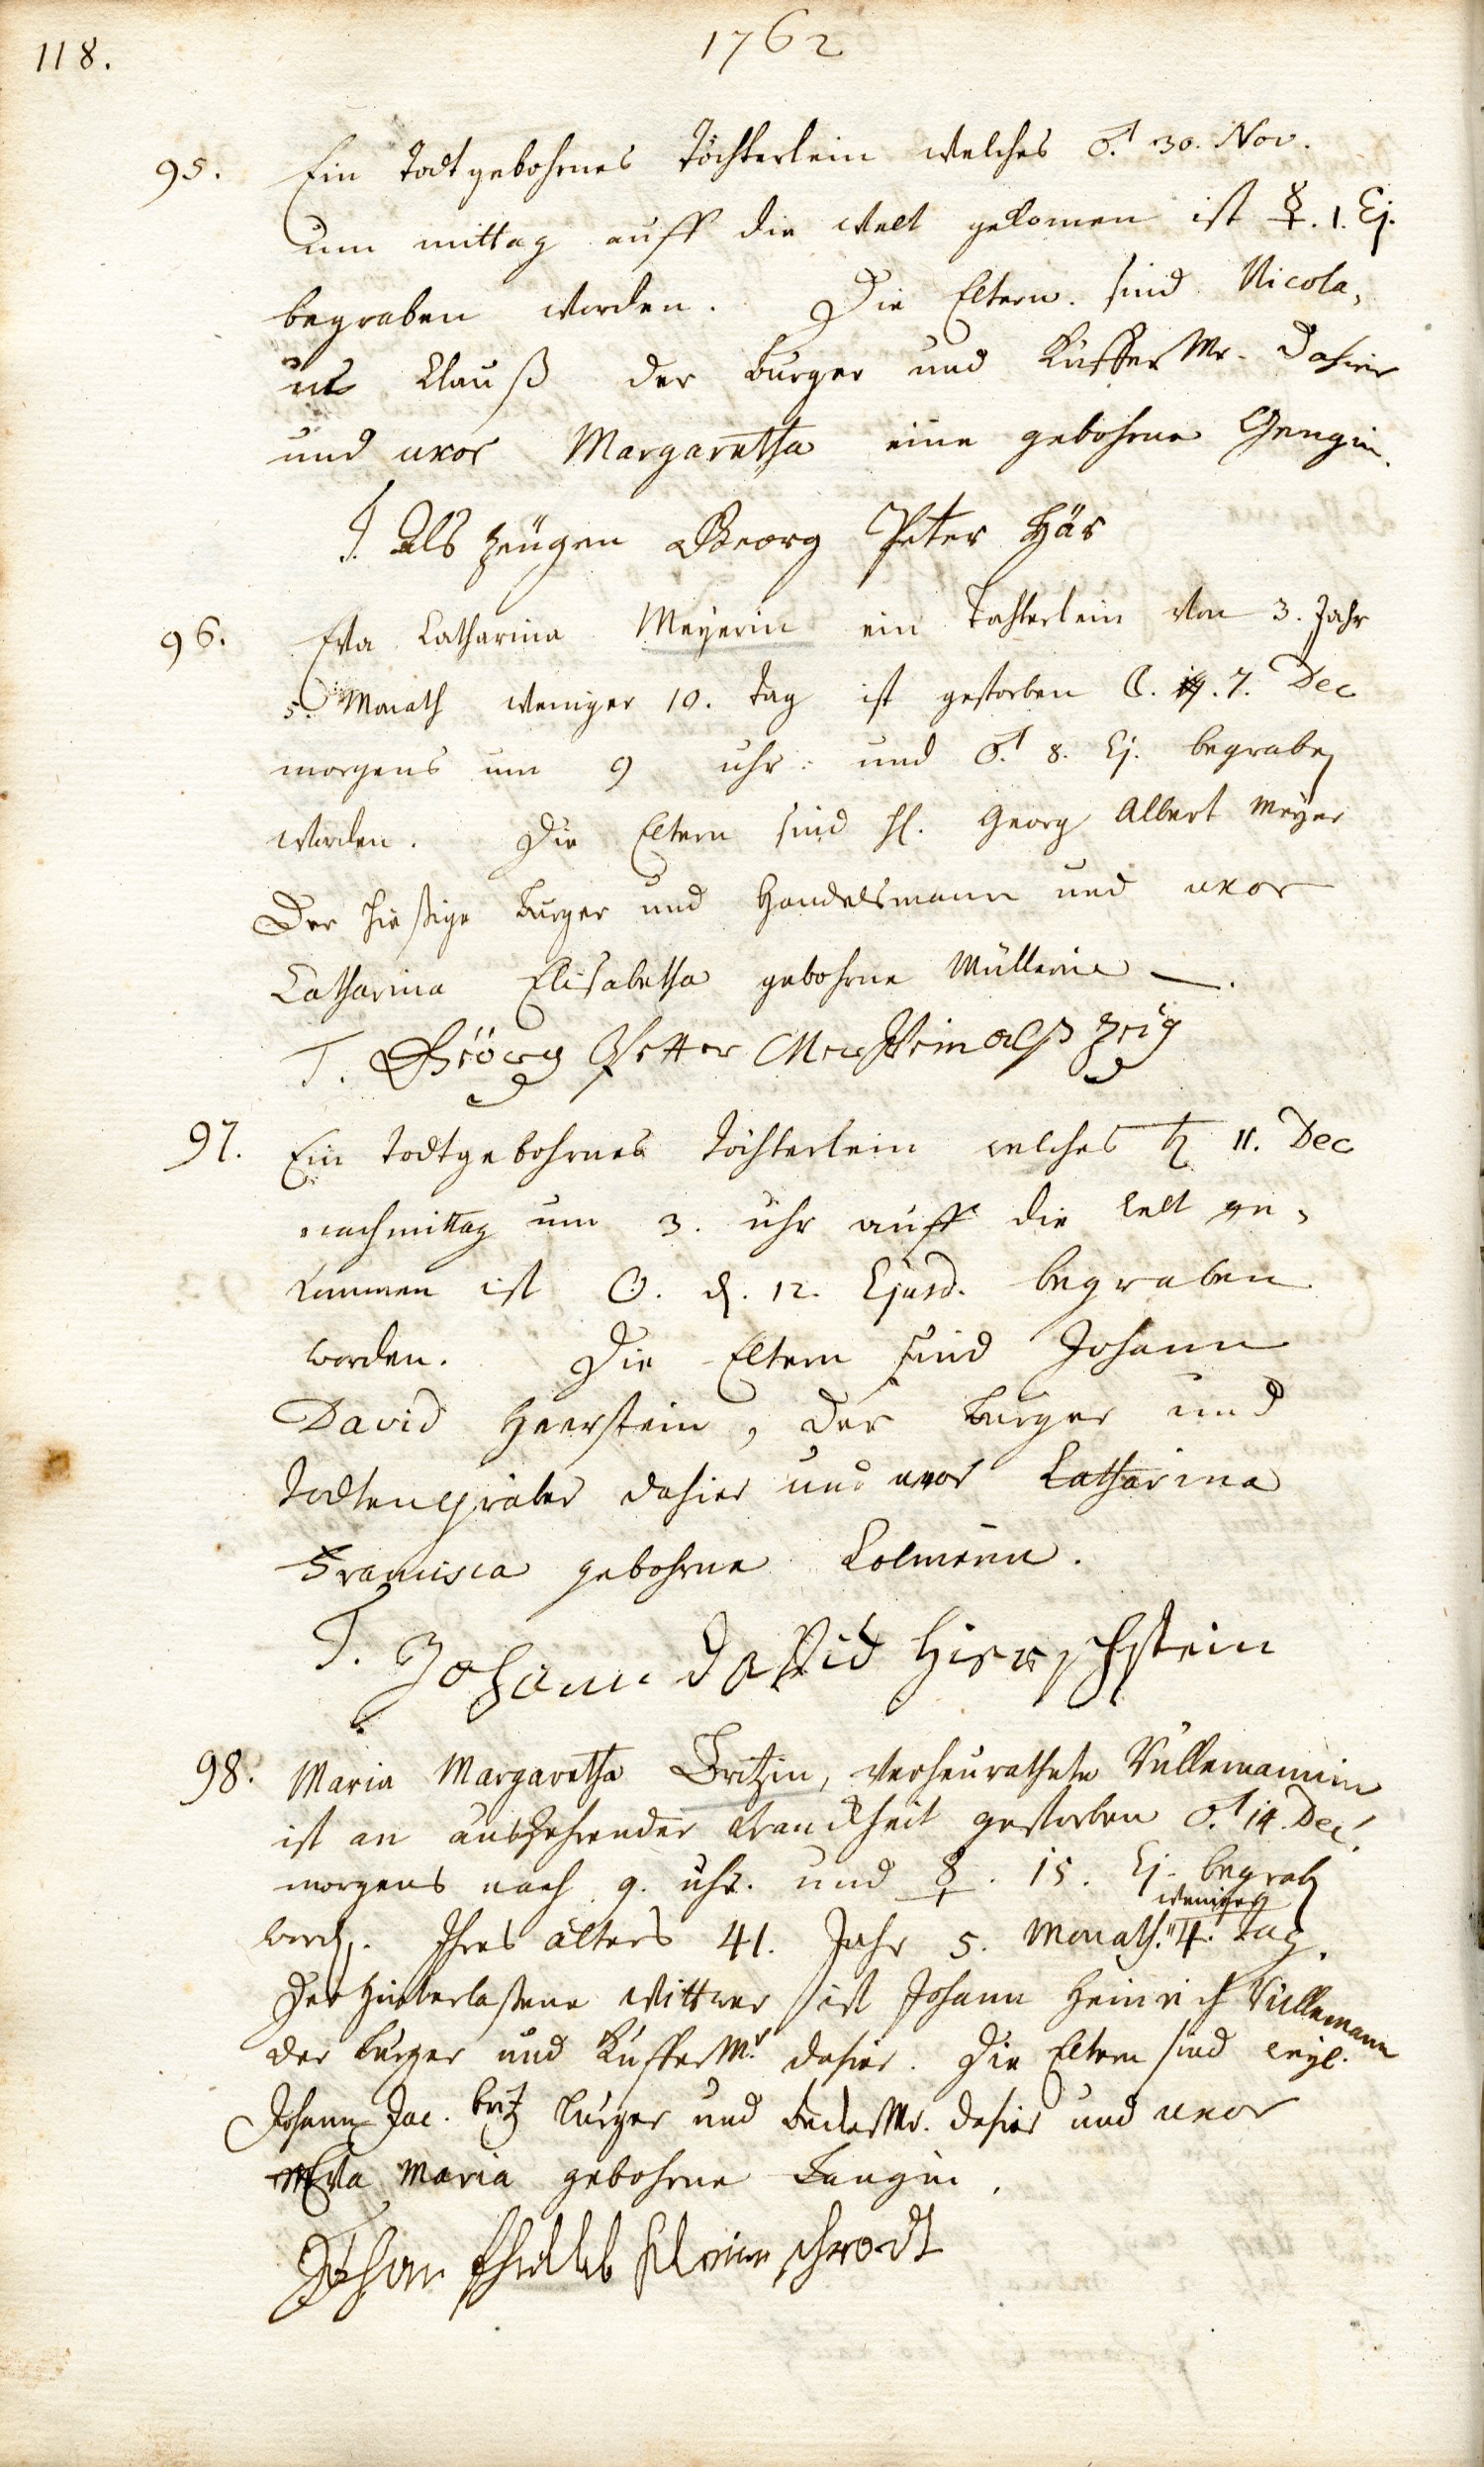 118.
1762
95. Ein todtgebohrnes Töchterlein welches ♂. 30. Nov.
um mittag auff die Welt gekomen ist ☿. 1. Ej.
begraben worden. Die Eltern sind Nicola,
us Clauß der Burger und Küffer Mr. dahier
und uxor Margaretha eine gebohrne Gengin.
T. Als zeügen Georg Peter Här
96. Eva Catharina Meyerin ein Töchterlein von 3. Jahr
5. Monath weniger 10. tag ist gestorben ☾. 7. Dec
morgens um 9 uhr: und ♂. 8. Ej. begraben
worden. Die Eltern sind H. Georg Albert Meyer
Der hießige Burger und Handelsmann und uxor
Catharina Elisabetha gebohrne Müllerin —.
T. Geörg Petter als zeig
97. Ein todtgebohrnes töchterlein welches ♄ 11. Dec
nachmittag um 3. uhr auff die Welt ge,
kommen ist ☉. d. 12. Ejusd. begraben
worden. Die Eltern sind Johann
David Heerstein, der Burger und
todtengräber dahier und uxor Catharina
Francisca gebohrne Colmenin.
T. Johann David Hierschstein
98. Maria Margaretha Britzin, verheurathete Vüllemannin
ist an auszehrender Kranckheit gestorben ♂. 14. Dec.
morgens nach 9. uhr. und ☿. 15. Ej. begraben
weniger
word. Ihres alters 41. Jahr 5. Monath. 4. tag.
Der hinterlaßene Wittwer ist Johann Heinrich Vüllemann
der Burger und Küffer Mr. dahier. Die Eltern sind weyl.
Johann Jac. Britz Burger und Becker Mr. dahier und uxor
Eva Maria gebohrne Langin.
Johan Philleb Kleinschrodt